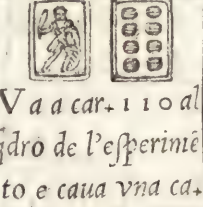 Va a car. 110 al
qdro de l'eſperimẽ
to e caua vna ca.